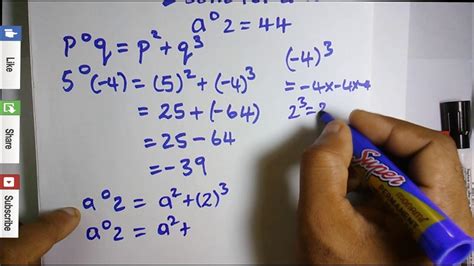 a°2=44
p°q = p²+q³
5°(-4) = (5)²+(-4)³
= 25+(-64)
= 25-64
= -39
a°2 = a²+(2)³
a°2 = a²+
(-4)³
= -4x-4x-4
2³=2
Super
Like
Share
Subscribe